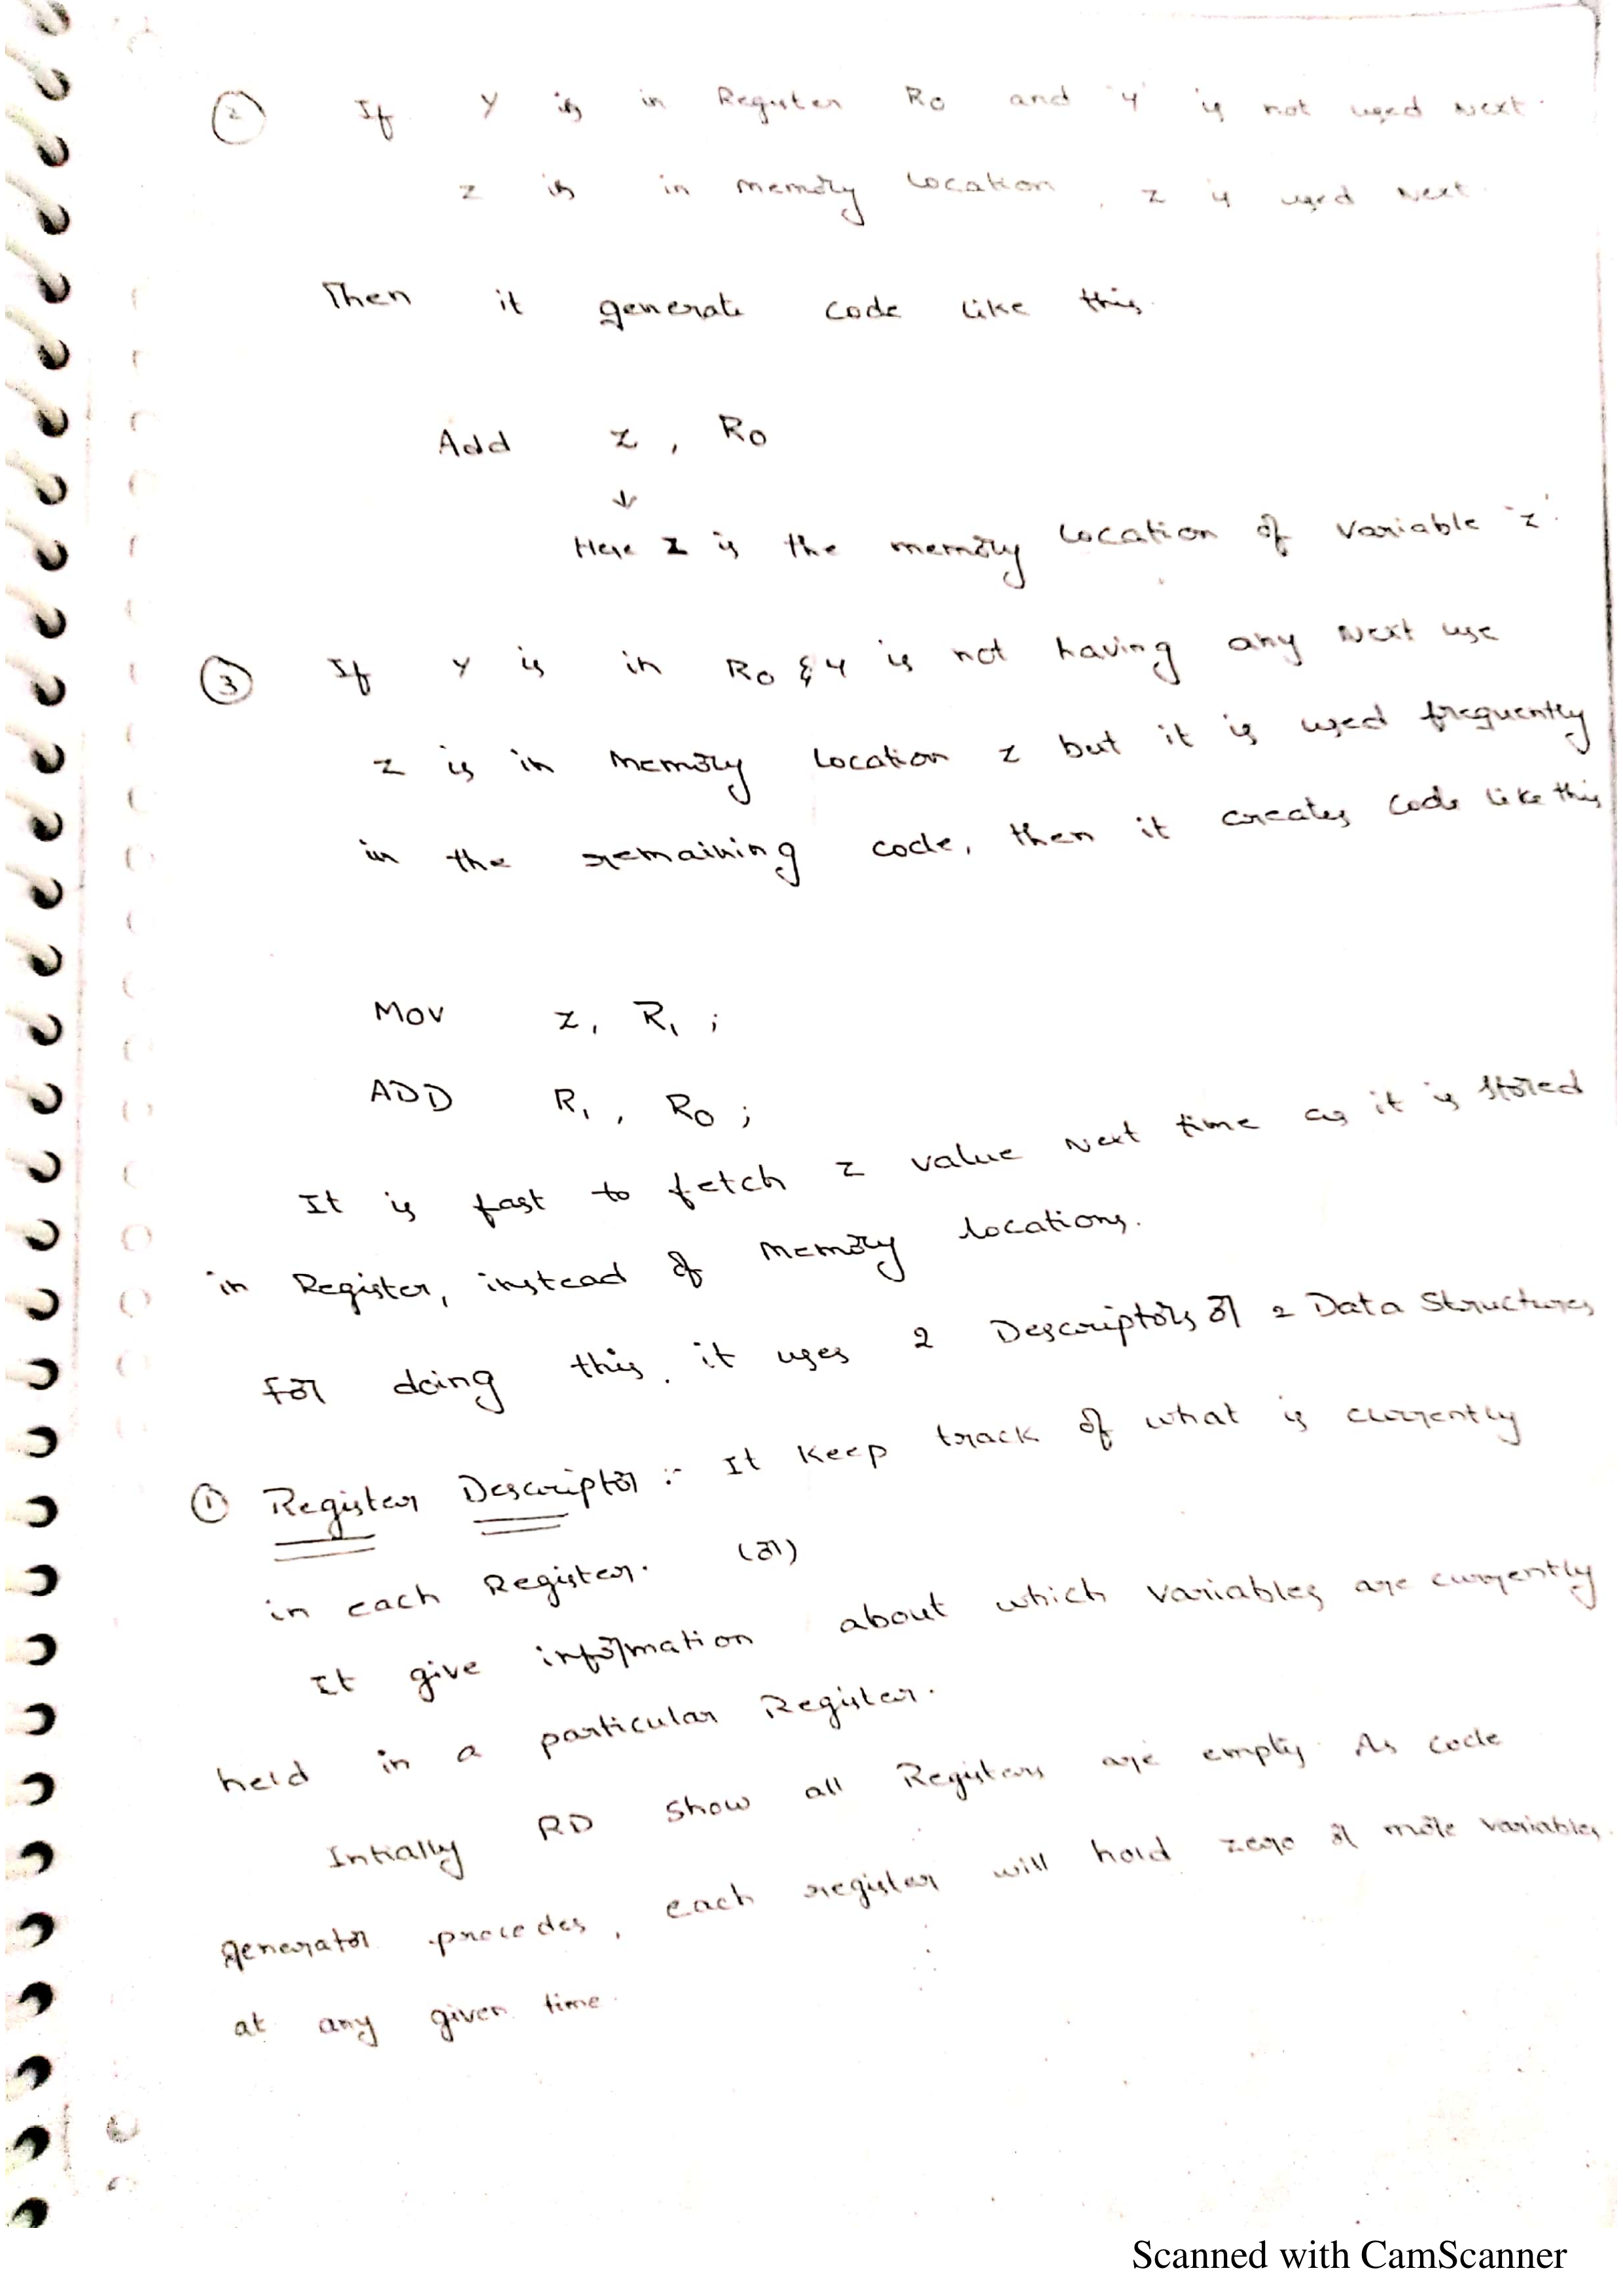 ② If Y is in Register R0 and 'y' is not used Next.
z is in memory location, z is used Next.
Then it generate code like this.
Add z, R0
↓
Here z is the memory location of variable 'z'.
③ If Y is in R0 & y is not having any Next use
z is in memory location z but it is used frequently
in the remaining code, then it creates code like this
Mov z, R1;
ADD R1, R0;
It is fast to fetch z value Next time as it is stored
in Register, instead of memory locations.
For doing this, it uses 2 Descriptors or 2 Data Structures
① Register Descriptor :- It keep track of what is currently
in each Register. (or)
It give information about which variables are currently
held in a particular Register.
Intially RD show all Registers are empty. As code
generator procedes, each register will hold zero or more variables.
at any given time.
Scanned with CamScanner